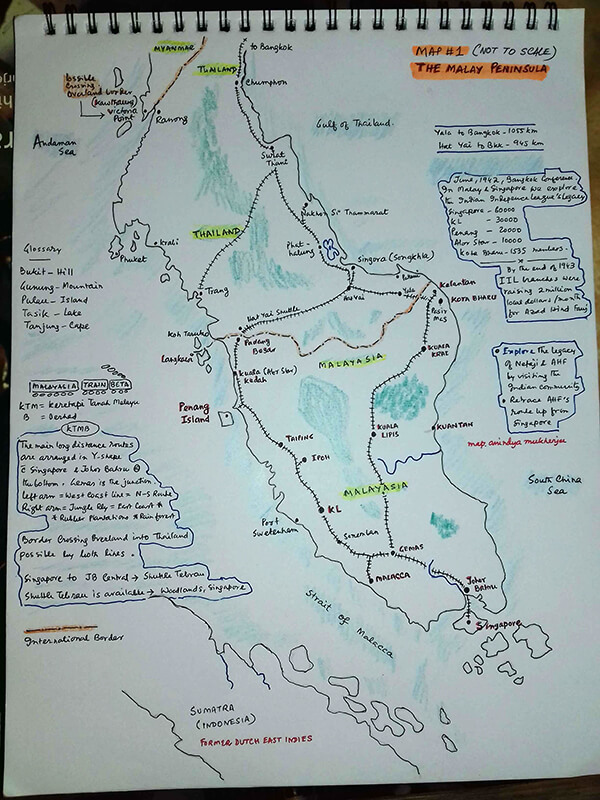 MAP #1 (NOT TO SCALE)
THE MALAY PENINSULA
MYANMAR
to Bangkok
THAILAND
Chumphon
crossing
overland border
(Kawthaung)
Victoria
Point
Ranong
Andaman
Sea
Gulf of Thailand
Yala to Bangkok - 1055 km
Hat Yai to Bkk - 945 km
Surat
Thani
June, 1942, Bangkok Conference
In Malay & Singapore we explore
the Indian Independence League's legacy
Singapore - 60000
KL - 30000
Penang - 20000
Alor Star - 10000
Kota Bharu - 1535 members.
By the end of 1943
IIL branches were
raising 2 million
local dollars/month
for Azad Hind Fauj
Nakhon Si Thammarat
THAILAND
Krabi
Phuket
Phat-
halung
Singora (Songkhla)
Glossary
Bukit - Hill
Gunung - Mountain
Pulau - Island
Tasik - Lake
Tanjung - Cape
Trang
Hat Yai
Yala
Kelantan
KOTA BHARU
Pasir
Mas
Hat Yai Shuttle
Koh Tarutao
Padang
Besar
Langkawi
KUALA
KRAI
MALAYASIA
Kuala (Alor Star)
Kedah
• Explore the legacy
of Netaji & AHF
by visiting the
Indian community
• Retrace AHF's
route up from
Singapore
MALAYASIA TRAIN BETA
KTM = Keretapi Tanah Melayu
B = Berhad
KTMB
Penang
Island
The main long distance routes
are arranged in Y-shape
c Singapore & Johor Bahru @
the bottom. Gemas is the junction
left arm = West Coast line = N-S Route
Right arm = Jungle Rly = East Coast *
* Rubber Plantations * Rainforest
Border Crossing Overland into Thailand
possible by both lines.
Singapore to JB Central → Shuttle Tebrau
Shuttle Tebrau is available → Woodlands, Singapore
TAIPING
KUALA
LIPIS
KUANTAN
map: anindya mukherjee
IPOH
South China
Sea
MALAYASIA
KL
Port
Swetenham
Seremban
GEMAS
MALACCA
Johor
Bahru
Singapore
Strait of Malacca
International Border
SUMATRA
(INDONESIA)
FORMER DUTCH EAST INDIES